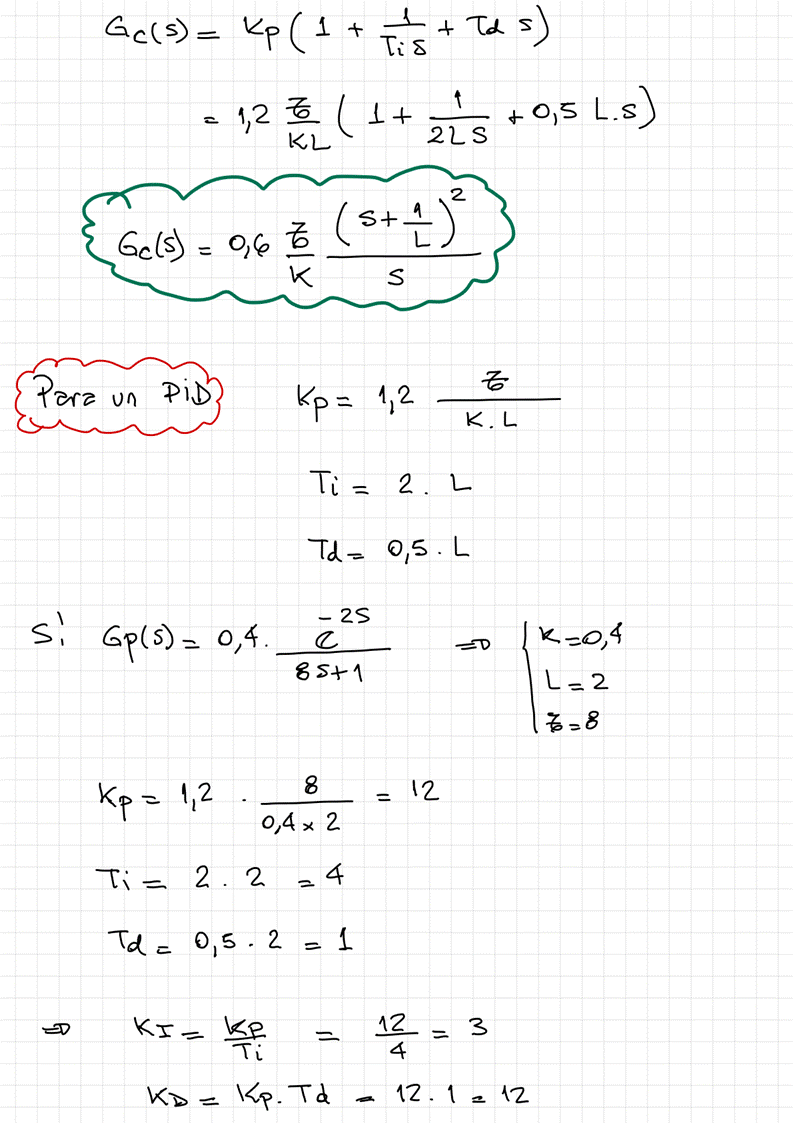 Gc(s) = Kp ( 1 + 1/(Ti s) + Td s )
= 1,2 τ/(KL) ( 1 + 1/(2LS) + 0,5 L.s )
Gc(s) = 0,6 τ/K (s + 1/L)²/s
Para un PiD
Kp = 1,2 τ/(K.L)
Ti = 2 . L
Td = 0,5 . L
Si Gp(s) = 0,4 . e^(-2S)/(8S+1) ⇒ { K = 0,4
L = 2
τ = 8
Kp = 1,2 . 8/(0,4 x 2) = 12
Ti = 2 . 2 = 4
Td = 0,5 . 2 = 1
⇒ KI = Kp/Ti = 12/4 = 3
KD = Kp . Td = 12 . 1 = 12